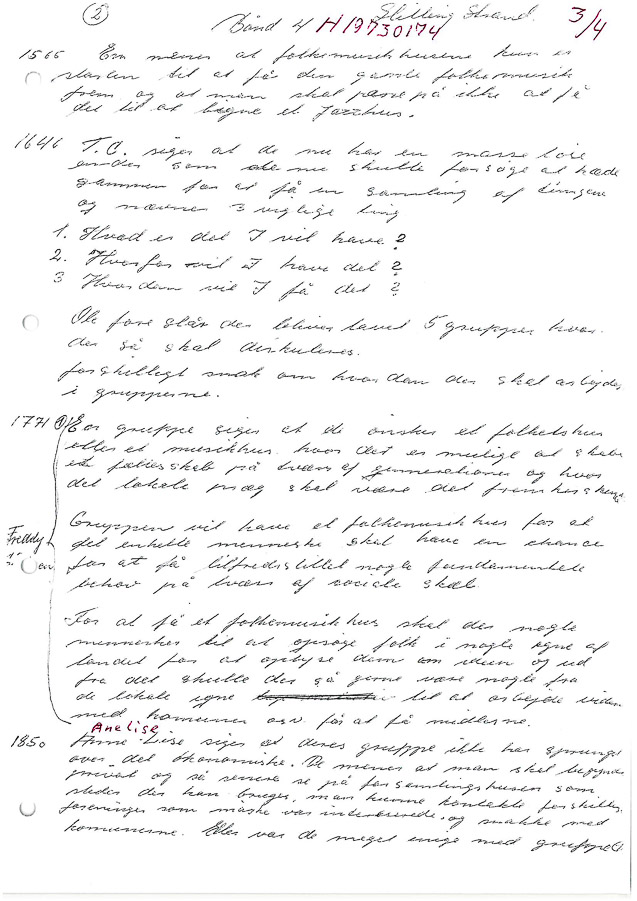 ② Bånd 4 H19730174 Slilling Strand 3/4
1566 En mener at folkemusikhusene kun er
starten til at få den gamle folkemusik
frem og at man skal passe på ikke at få
det til at ligne et Jazzhus.
1646 T.C. siger at de nu har en masse løse
ender som de nu skulle forsøge at
sammen for at få en samling af tingene
og nævner 3 vigtige ting
1. Hvad er det I vil have?
2. Hvorfor vil I have det?
3 Hvordan vil I få det?
Ole foreslår der bliver lavet 5 grupper hvor
der så skal diskuteres.
forskelligt snak om hvordan der skal arbejdes
i grupperne.
1771 ① En gruppe siger at de ønsker et folkets hus
eller et musikhus hvor det er muligt at skabe
et fællesskab på tværs af generationer og hvor
det lokale præg skal være det fremherskende
Freddy
Gruppen vil have et folkemusikhus for at
det enkelte menneske skal have en chance
for at få tilfredsstillet nogle fundamentale
behov på tværs af sociale skel
For at få et folkemusikhus skal der nogle
mennesker til at opsøge folk i nogle egne af
landet for at oplyse dem om ideen og ud
fra det skulle der så gerne være nogle fra
de lokale egne til at arbejde videre
med kommunen osv. for at få midlerne.
Anelise
1850 Anne-Lise siger at deres gruppe ikke har sprunget
over det økonomiske. De mener at man skal begynde
privat og så senere se på forsamlingshusene som
steder der kan bruges, man kunne kontakte forskellige
foreninger som måske var interesserede og snakke med
kommunerne. Ellers var de meget enige med gruppe 1